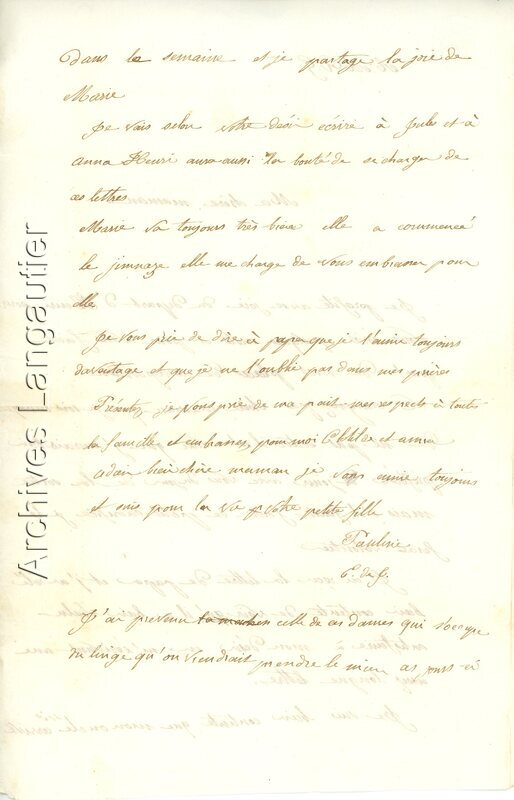 Dans la semaine et je partage la joie de
Marie
Je vais selon votre désir écrire à Jules et à
Anna Henri aura aussi la bonté de se charger de
ces lettres
Marie va toujours très bien elle a commencé
le jimnaze elle me charge de vous embrasser pour
elle
Je vous prie de dire à papa que je l'aime toujours
davantage et que je ne l'oublie pas dans mes prières
Présentez, je vous prie de ma part mes respects à toute
la famille et embrasses, pour moi et anna
adieu bien chère maman je vous aime toujours
et suis pour la vie votre petite fille
Pauline
P. de G.
J'ai prevenu celle de ces dames qui s'occupe
du linge qu'on viendrait prendre le mien ces jours ci
Archives Langautier